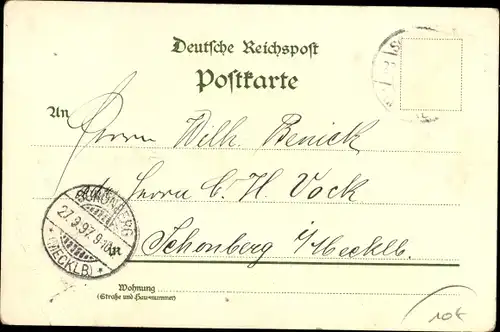 Deutsche Reichspost
Postkarte
An Herrn Wilh. Benick
p. Herrn C. H. Vock
Schönberg i/Mecklb.
SCHÖNBERG
27.9.97. 9-10
(MECKLB)
Wohnung
(Straße und Hausnummer)
10€